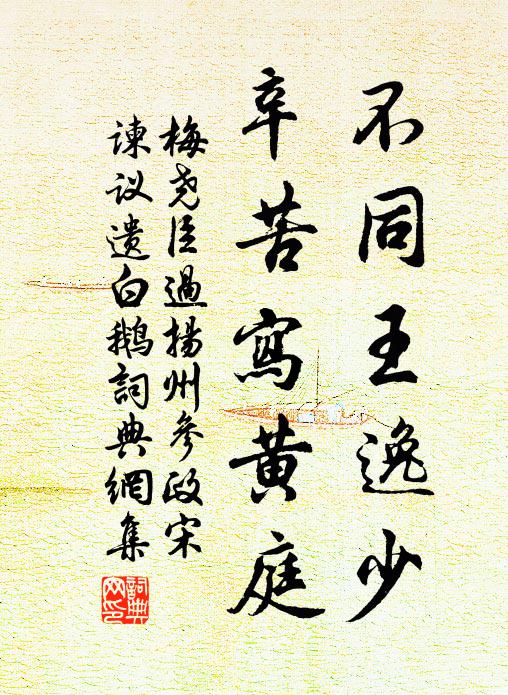 不同王逸少
辛苦寫黄庭
梅尧臣過揚州參政宋
諫议遗白鹅詞典網集
詞典
网印